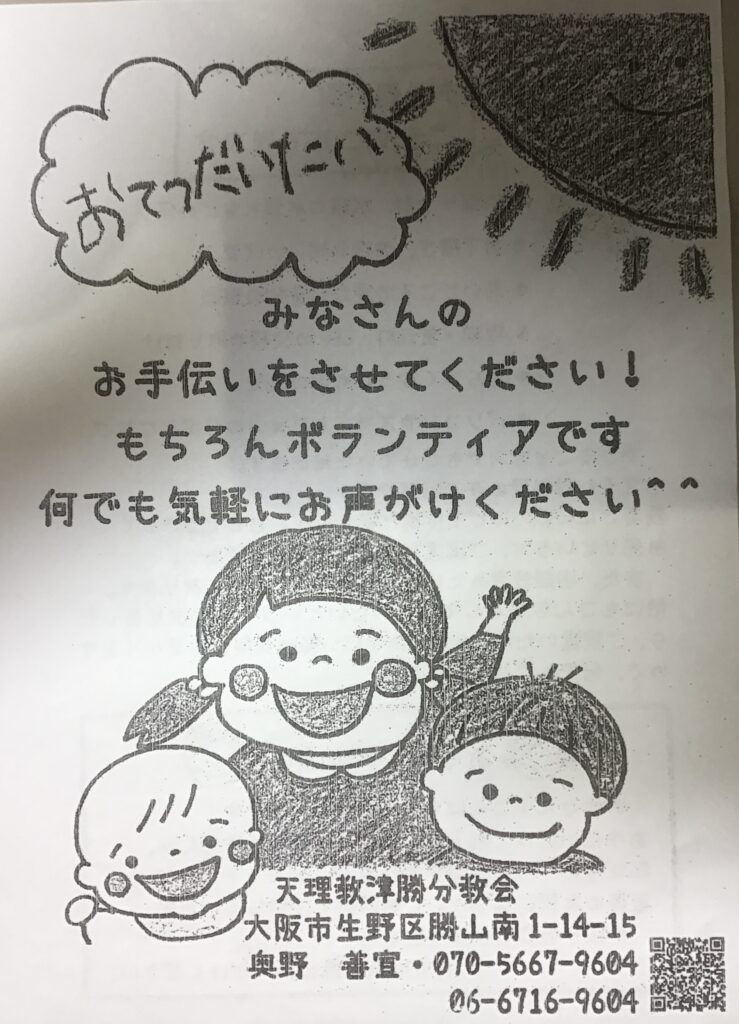 おてつだいたい
みなさんの
お手伝いをさせてください！
もちろんボランティアです
何でも気軽にお声がけください^ ^
天理教津勝分教会
大阪市生野区勝山南1-14-15
奥野　善宣・070-5667-9604
06-6716-9604